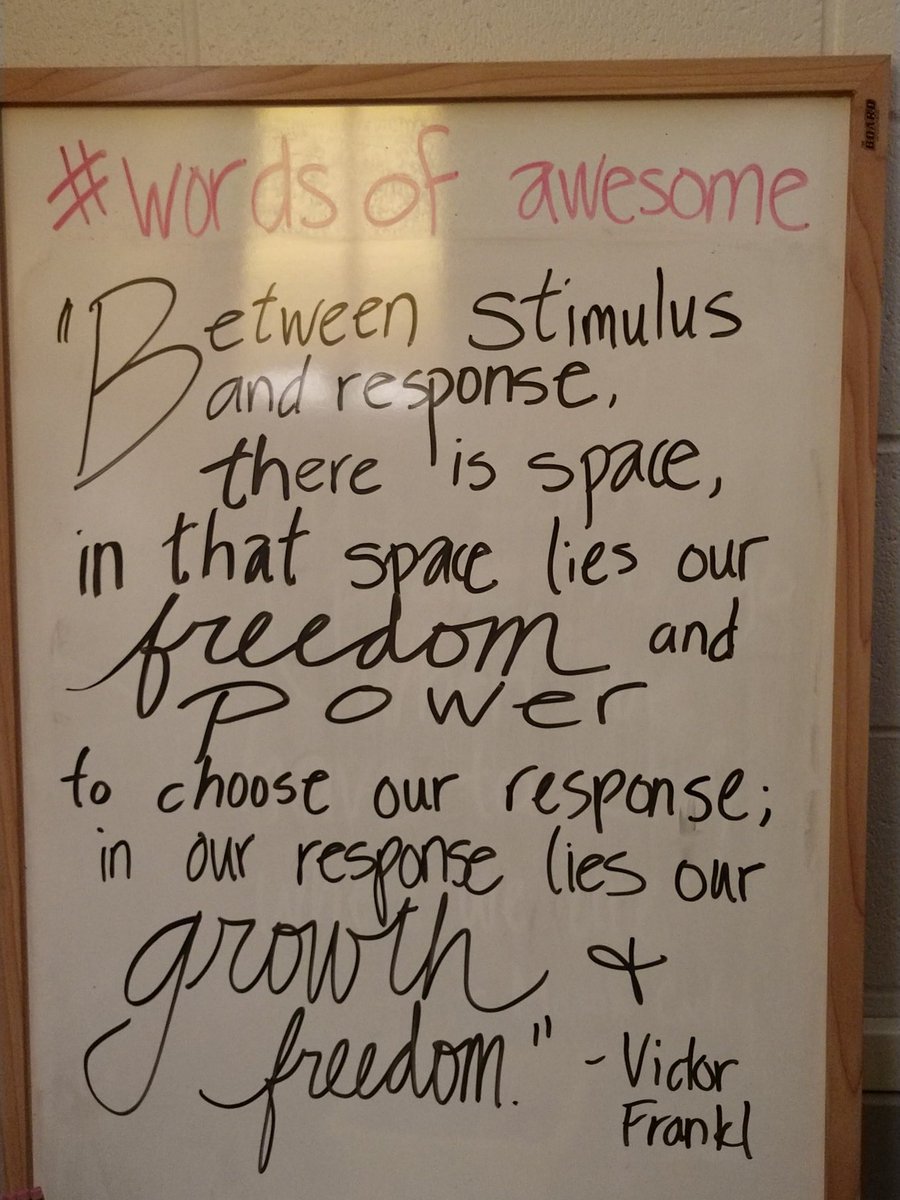 #words of awesome
"Between stimulus
and response,
there is space,
in that space lies our
freedom and
power
to choose our response;
in our response lies our
growth &
freedom." - Victor
Frankl
BOARD